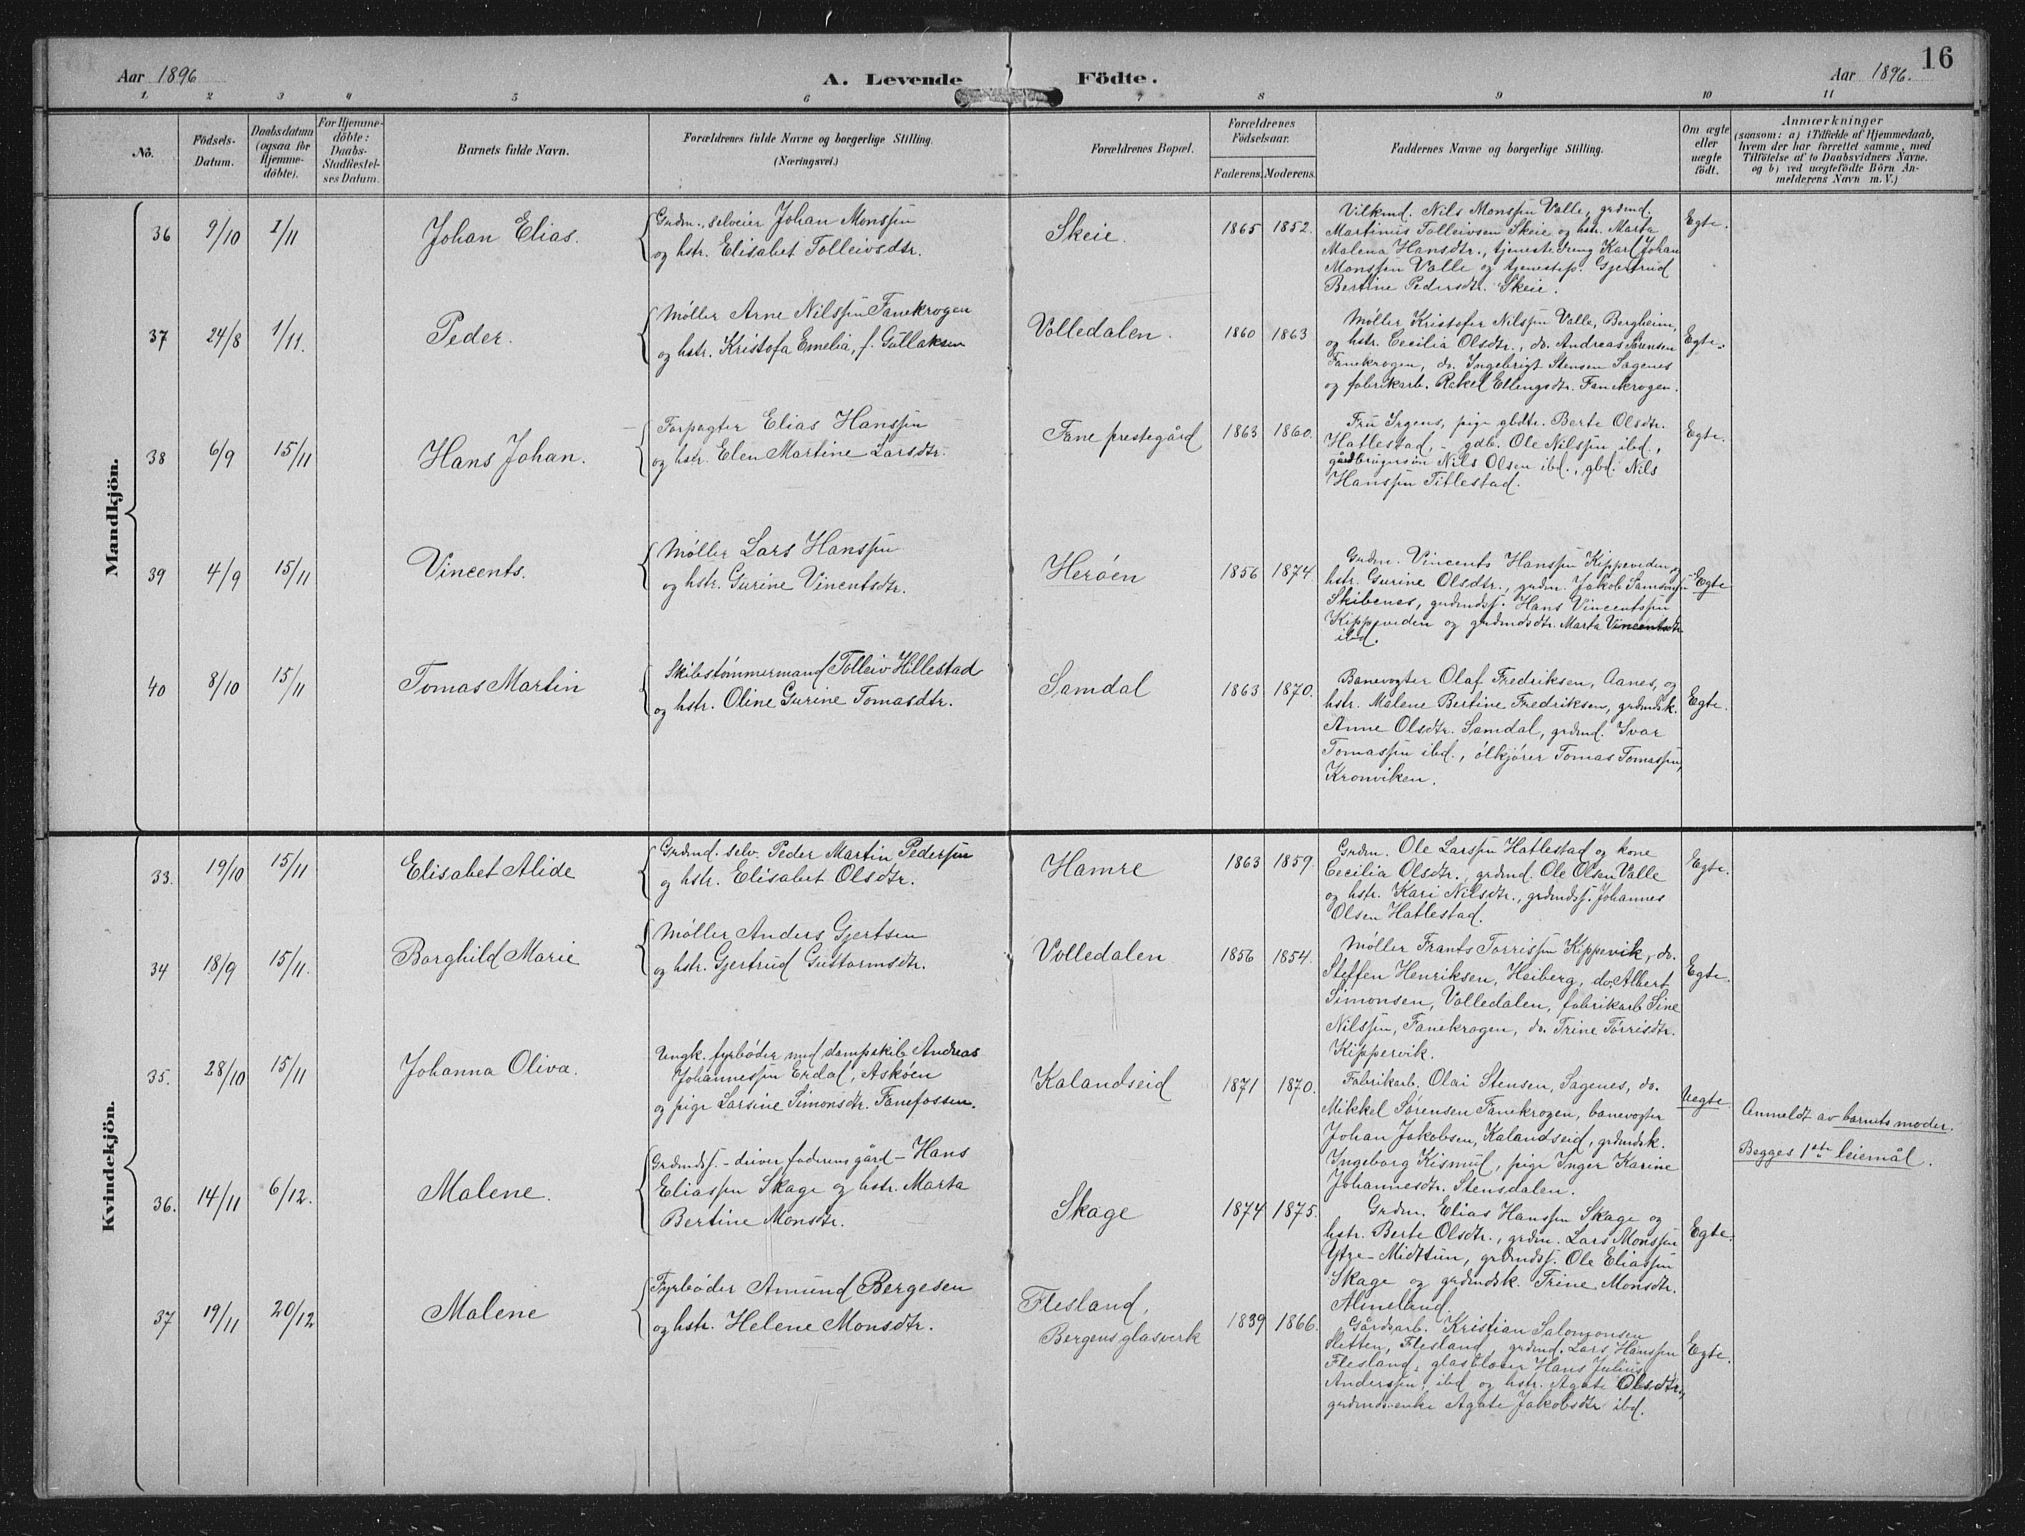 16
Aar 1896
A. Levende Födte.
Aar 1896.
1. 2 3 4 5 6 7 8 9 10 11
No.
Födsels-Datum.
Daabsdatum (ogsaa for Hjemme-döbte).
For Hjemme-döbte: Daabs-Stadfæstel-ses Datum.
Barnets fulde Navn.
Forældrenes fulde Navne og borgerlige Stilling.
(Næringsvei.)
Forældrenes Bopæl.
Forældrenes Födselsaar.
Faderens. Moderens.
Faddernes Navne og borgerlige Stilling.
Om ægte eller uægte födt.
Anmærkninger
(saasom: a) i Tilfælde af Hjemmedaab,
hvem der har forrettet samme, med
Tilföielse af to Daabsvidners Navne.
og b) ved uægtefödte Börn An-
melderens Navn m. V.)
Mandkjön.
36 9/10 1/11 Johan Elias.
Grdm., selveier Johan Monssen
og hstr. Elisabet Tolleivsdtr.
Skeie. 1865 1852.
Vilkmd. Nils Monssen Valle, grdmd.
Martinus Tolleivsen Skeie og hstr. Marta
Malena Hansdtr., tjenestedreng Karl Johan
Monssen Valle og tjenestep. Gjertrud
Bertine Pedersdtr. Skeie.
Egte.
37 24/8 1/11. Peder.
Møller Arne Nilssen Fanekrogen
og hstr. Kristofa Emelia, f. Gullaksen
Volledalen. 1860 1863
Møller Kristofer Nilssen Valle, Bergheim,
og hstr. Cecilia Olsdtr., do. Andreas Sørensen
Fanekrogen, do. Ingebrigt Stensen Sagenes
og fabrikarb. Rakel Ellingsdtr. Fanekrogen.
Egte.
38 6/9 15/11 Hans Johan.
Forpagter Elias Hanssen
og hstr. Elen Martine Larsdtr.
Fane prestegård 1863 1860.
Fru Irgens, pige Berte Olsdtr.
Hatlestad, gdb. Ole Nilssen ibd.,
gårdbrugersøn Nils Olsen ibd., gbd. Nils
Hanssen Titlestad.
Egte.
39 4/9 15/11 Vincents.
Møller Lars Hanssen
og hstr. Gurine Vincentsdtr.
Herøen 1856 1874.
Grdm. Vincents Hanssen Kippeviden og
hstr. Gurine Olsdtr., grdm. Jakob Samsonsen
Skibenes, grdmdss. Hans Vincentssen
Kippeviden og grdmdsdtr. Marta Vincentsdtr
ibd.
Egte
40 8/10 15/11 Tomas Martin
Skibstømmermand Tolleiv Hillestad
og hstr. Oline Gurine Tomasdtr.
Samdal 1863 1870.
Banevogter Olaf Fredriksen, Aanes, og
hstr. Malene Bertine Fredriksen, grdmdsk.
Anne Olsdtr. Samdal, grdmd. Ivar
Tomassen ibd., ølkjører Tomas Tomassen,
Kronviken.
Egte.
Kvindekjön.
33. 19/10 15/11 Elisabet Alide
Grdmd. selv. Peder Martin Pedersen
og hstr. Elisabet Olsdtr.
Hamre 1863 1859.
Grdm. Ole Larssen Hatlestad og kone
Cecilia Olsdtr., grdmd. Ole Olsen Valle
og hstr. Kari Nilsdtr., grdmdss. Johannes
Olsen Hatlestad.
Egte.
34 18/9 15/11. Borghild Marie
Møller Anders Gjertsen
og hstr. Gjertrud Guttormsdtr.
Volledalen 1856 1854.
Møller Frants Torrissen Kippevik, do.
Steffen Henriksen, Heiberg, do. Albert
Simonsen, Volledalen, fabrikarb. Sine
Nilssen, Fanekrogen, do. Trine Torrisdtr.
Kippervik.
Egte.
35. 28/10 15/11 Johanna Oliva.
Ungk. fyrbøder med dampskib Andreas
Johannessen Erdal, Askøen
og pige Larsine Simonsdtr. Fanefossen.
Kalandseid 1871 1870.
Fabrikarb. Olai Stensen, Sagenes, do.
Mikkel Sørensen Fanekrogen, banevogter
Johan Jakobsen, Kalandseid, grdmdsk.
Ingeborg Kismul, pige Inger Karine
Johannesdtr. Stensdalen.
Uegte.
Anmeldt av barnets moder.
Begges 1ste leiemål.
36. 14/11 6/12. Malene.
Grdmdss. - driver faderens gård - Hans
Eliassen Skage og hstr. Marta
Bertine Monsdtr.
Skage 1874 1875.
Grdm. Elias Hanssen Skage og
hstr. Berte Olsdtr., grdm. Lars Monssen
Ytre-Midttun, grdmdss. Ole Eliassen
Skage og grdmdsk. Trine Monsdtr.
Almeland.
Egte.
37 19/11 20/12 Malene
Fyrbøder Amund Bergesen
og hstr. Helene Monsdtr.
Flesland,
Bergens glasverk 1839 1866.
Gårdsarb. Kristian Salomonsen
Sletten, Flesland, grdmd. Lars Hanssen
Flesland, glasblæser Hans Julius
Anderssen, ibd og hstr. Agate Olsdtr,
grdmdsenke Agate Jakobsdtr ibd.
Egte.